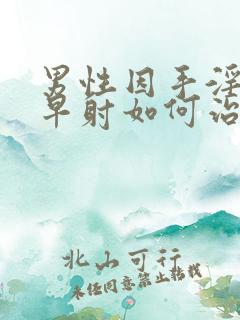 男性因手淫
早射如何治
北山可行
未经同意禁止转载